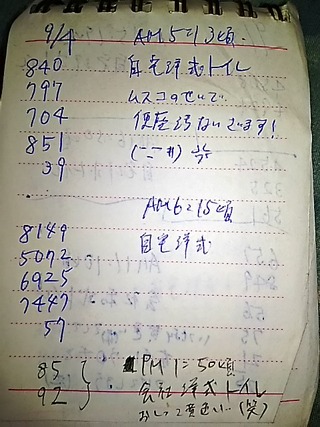 9/4 AM 5:13頃.
840 自宅洋式トイレ
797 ムスコのせいで
704 便座 ないでます!
851
39
AM 6:15頃
8149 自宅洋式
5072
6925
7447
57
85 PM 1:50頃
92 会社洋式トイレ
(笑)